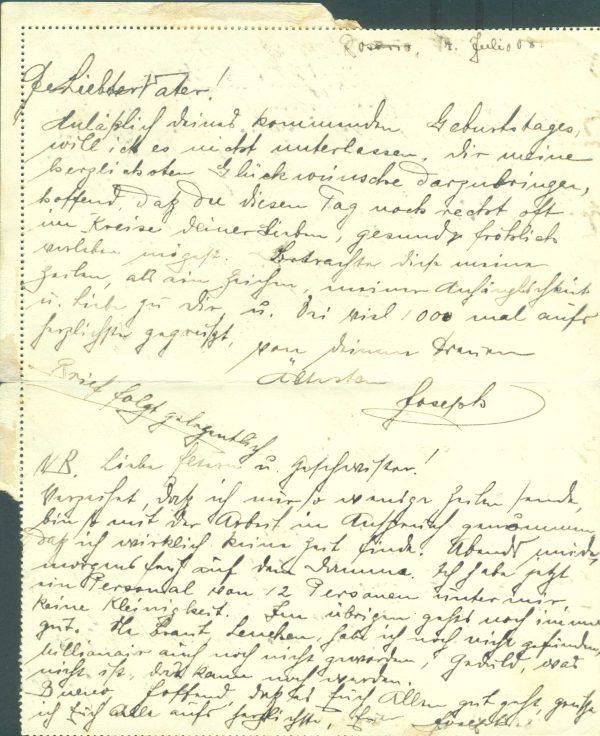 Rosario, 14. Julio 08.
Geliebter Vater!
Anläßlich deines kommenden Geburtstages,
will ich es nicht unterlassen, dir meine
herzlichsten Glückwünsche darzubringen,
hoffend, daß du diesen Tag noch recht oft
im Kreise deiner Lieben, gesund & fröhlich
verleben mögest. Betrachte diese meine
Zeilen, als ein Zeichen, meiner Anhänglichkeit
u. Liebe zu Dir, u. sei viel 1000 mal aufs
herzlichste gegrüßt,
von deinem treuen
Ältesten
Joseph
Brief folgt gelegentlich
NB. Liebe Eltern u. Geschwister!
Verzeihet, daß ich nur so wenige Zeilen sende,
bin so mit der Arbeit in Anspruch genommen
daß ich wirklich keine Zeit finde. Abends müde,
morgens früh auf dem Damme. Ich habe jetzt
ein Personal von 12 Personen unter mir,
keine Kleinigkeit. Im übrigen gehts noch immer
gut. Ne Braut, Lenchen, hab ich noch nicht gefunden,
Millionair auch noch nicht geworden, Geduld, was
nicht ist, das kann noch werden.
Bueno, hoffend, daß es Euch Allen gut geht, grüße
ich Euch alle aufs herzlichste, Euer Joseph.